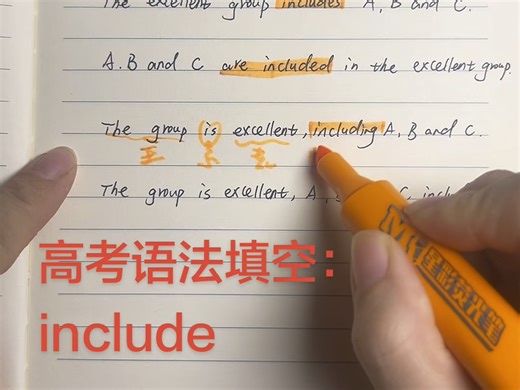 The excellent group includes A, B and C.
A. B and C are included in the excellent group.
The group is excellent, including A, B and C.
主 系 表
The group is excellent, A, C, inclu
高考语法填空：
include
星彩荧光笔